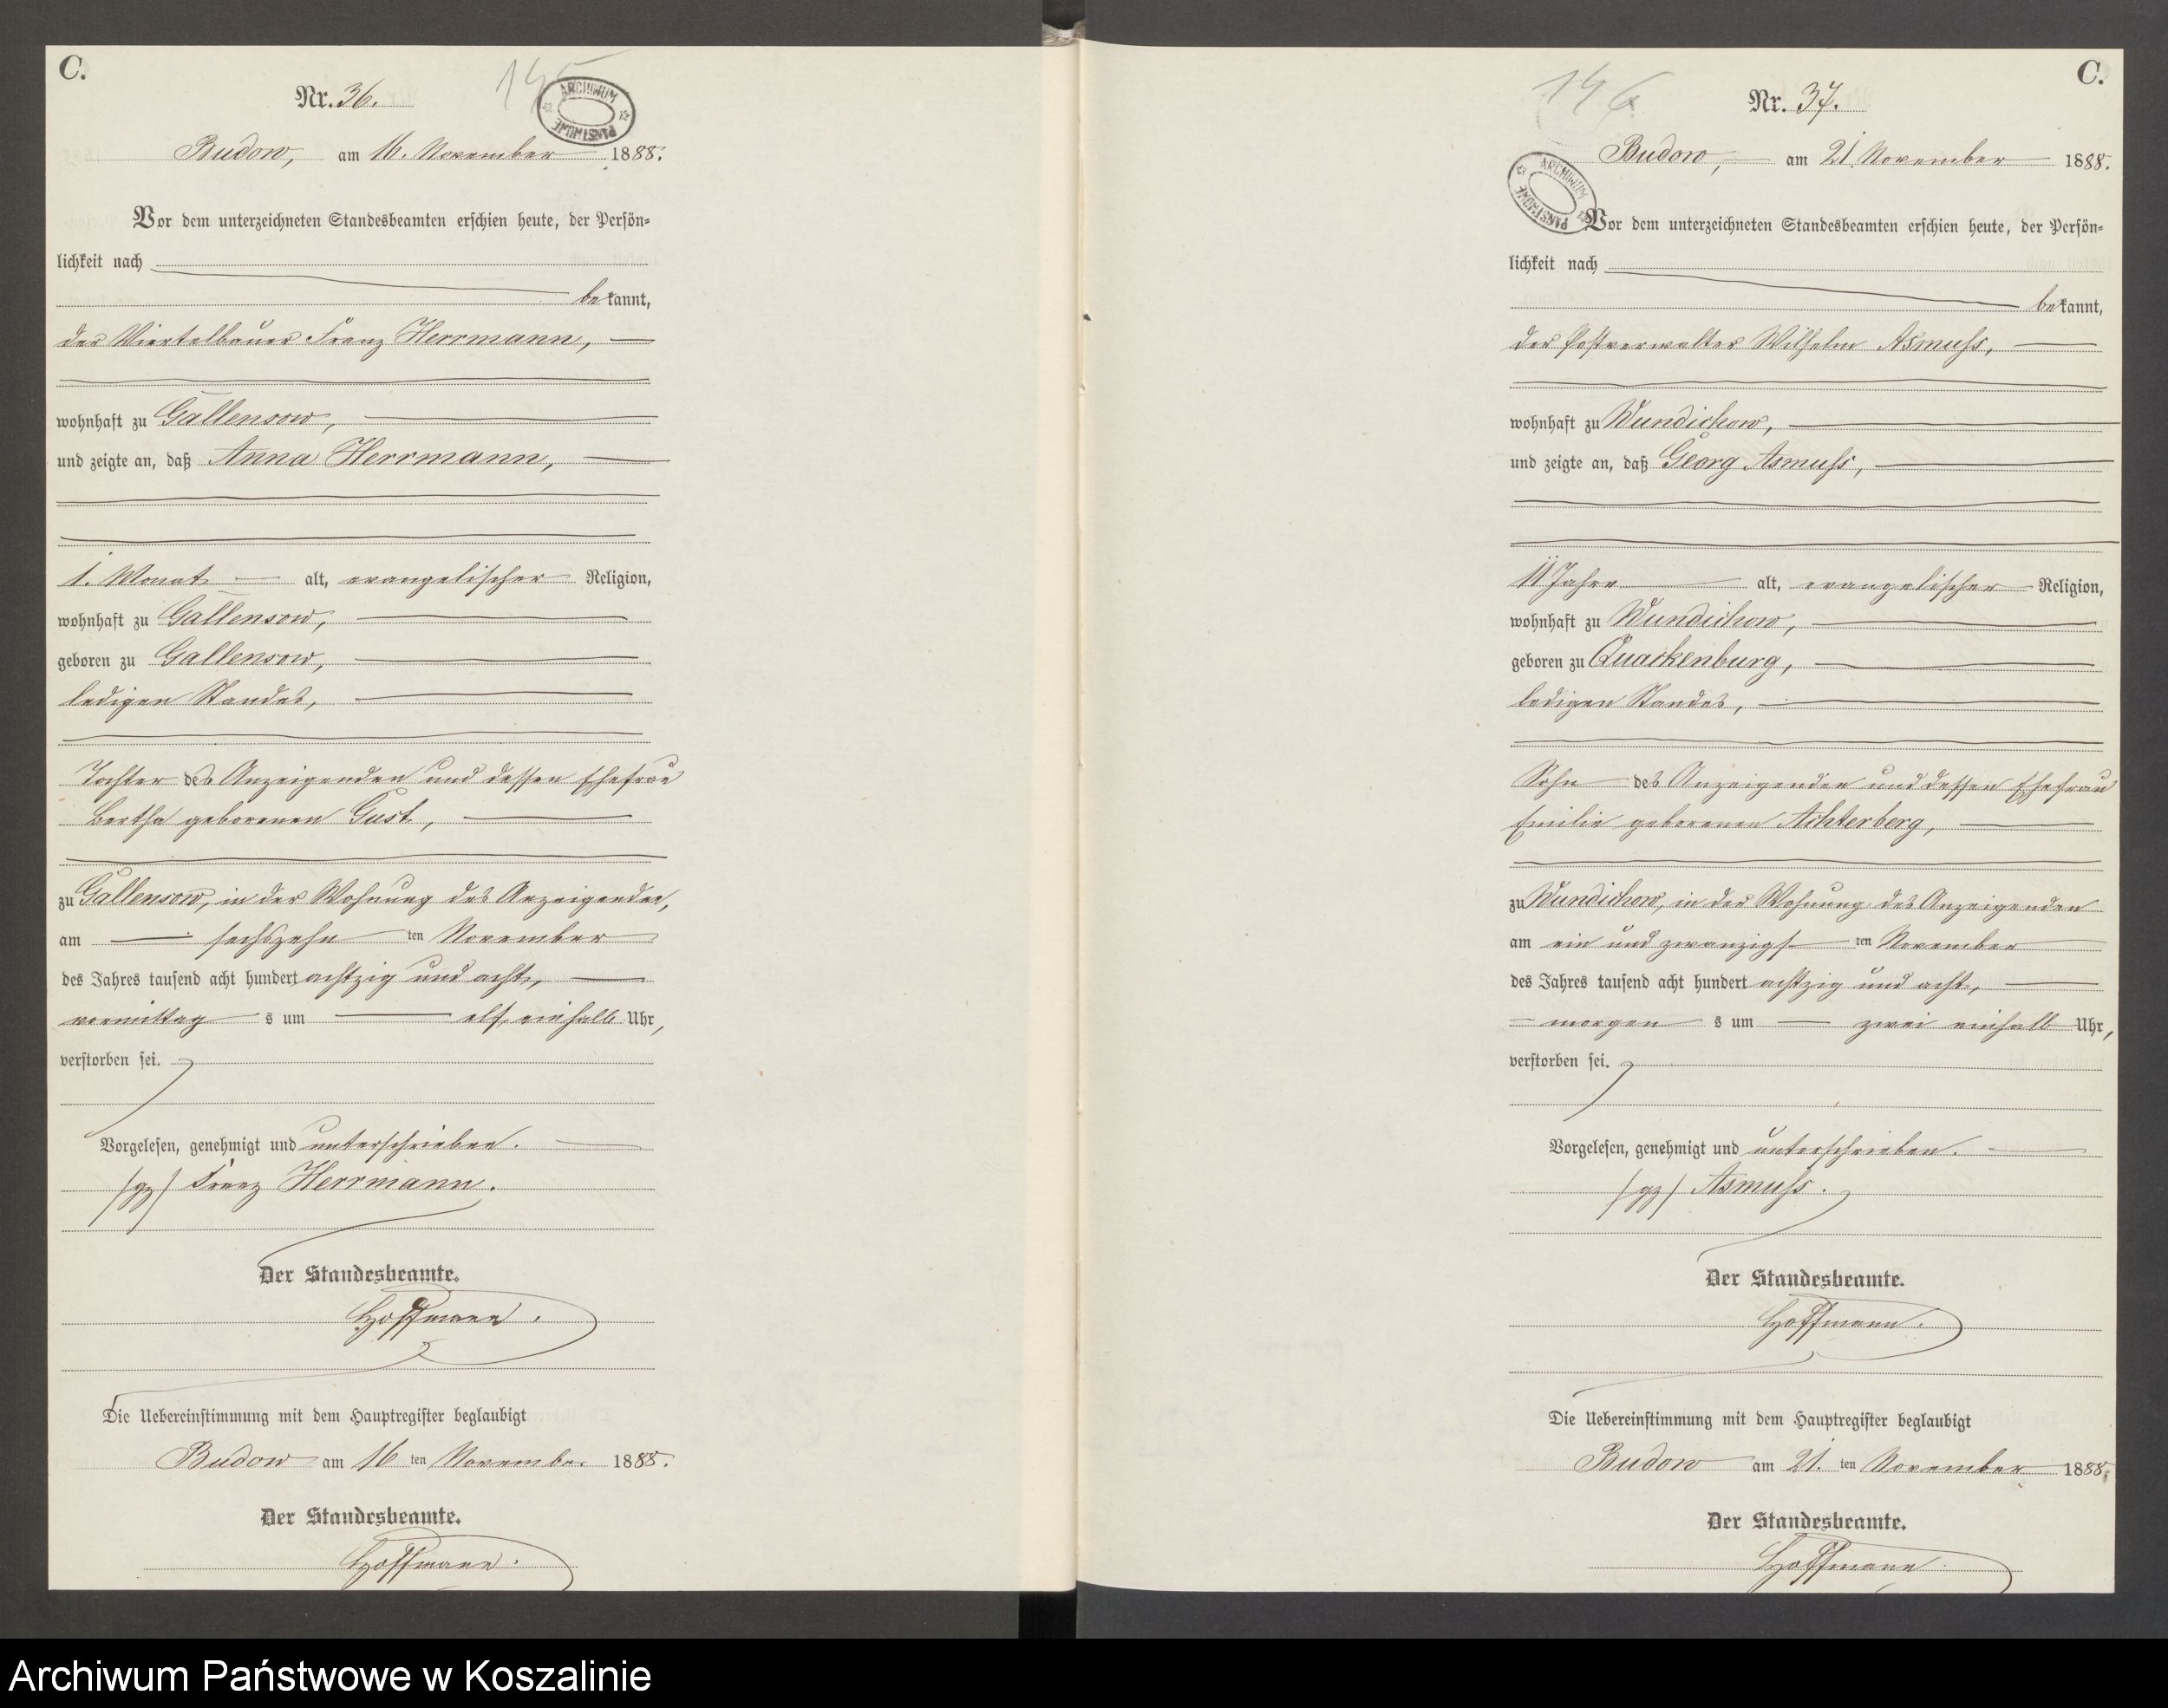 C.
145
ARCHIWUM PAŃSTWOWE
Nr. 36.
Budow, am 16. November 1888.
Vor dem unterzeichneten Standesbeamten erschien heute, der Persön-
lichkeit nach
bekannt,
der Viertelbauer Franz Herrmann,
wohnhaft zu Gallensow,
und zeigte an, daß Anna Herrmann,
1. Monat alt, evangelischer Religion,
wohnhaft zu Gallensow,
geboren zu Gallensow,
ledigen Standes,
Tochter des Anzeigenden und dessen Ehefrau
Bertha geborenen Gust,
zu Gallensow, in der Wohnung des Anzeigenden,
am sechszehn ten November
des Jahres tausend acht hundert achtzig und acht,
vormittag s um elf einhalb Uhr,
verstorben sei.
Vorgelesen, genehmigt und unterschrieben.
/gz/ Franz Herrmann.
Der Standesbeamte.
Hoffmann.
Die Uebereinstimmung mit dem Hauptregister beglaubigt
Budow am 16 ten November 1888.
Der Standesbeamte.
Hoffmann.
C.
146
ARCHIWUM PAŃSTWOWE
Nr. 37.
Budow, am 21. November 1888.
Vor dem unterzeichneten Standesbeamten erschien heute, der Persön-
lichkeit nach
bekannt,
der Postverwalter Wilhelm Asmuss,
wohnhaft zu Wundichow,
und zeigte an, daß Georg Asmuss,
11 Jahre alt, evangelischer Religion,
wohnhaft zu Wundichow,
geboren zu Quackenburg,
ledigen Standes,
Sohn des Anzeigenden und dessen Ehefrau
Emilie geborenen Achterberg,
zu Wundichow, in der Wohnung des Anzeigenden
am ein und zwanzigs ten November
des Jahres tausend acht hundert achtzig und acht,
morgen s um zwei einhalb Uhr,
verstorben sei.
Vorgelesen, genehmigt und unterschrieben.
/gz/ Asmuss.
Der Standesbeamte.
Hoffmann.
Die Uebereinstimmung mit dem Hauptregister beglaubigt
Budow am 21. ten November 1888.
Der Standesbeamte.
Hoffmann.
Archiwum Państwowe w Koszalinie